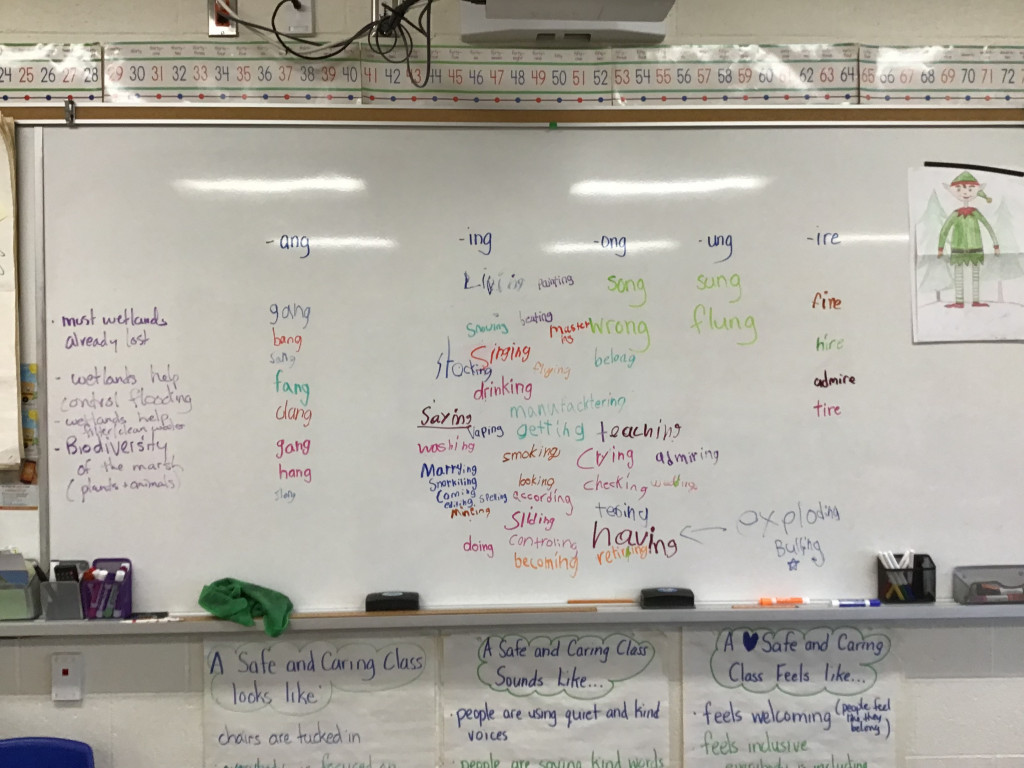 24 25 26 27 28 29 30 31 32 33 34 35 36 37 38 39 40 41 42 43 44 45 46 47 48 49 50 51 52 53 54 55 56 57 58 59 60 61 62 63 64 65 66 67 68 69 70 71 72
- ang
gang
bang
sang
fang
clang
gang
hang
- ing
Living painting
Snowing beating
Singing
stocking flying
drinking
manufacktering
Saying
Vaping getting teaching
washing smoking Crying admiring
Marrying
Snorkiling booking checking
Coming
editing according
Minting Sliding
having
exploding
Bulling
doing controling
becoming
- ong
song
wrong
belong
- ung
sung
flung
- ire
fire
hire
admire
tire
· must wetlands
already lost
- wetlands help
control flooding
- wetlands help
filter/clean water
- Biodiversity
of the marsh
(plants + animals)
A Safe and Caring Class
looks like:
chairs are tucked in
everybody is focused on
A Safe and Caring Class
Sounds Like...
· people are using quiet and kind
voices
people are saying kind words
A ♥ Safe and Caring
Class Feels Like...
· feels welcoming (people feel
like they
belong)
feels inclusive
everybody is including